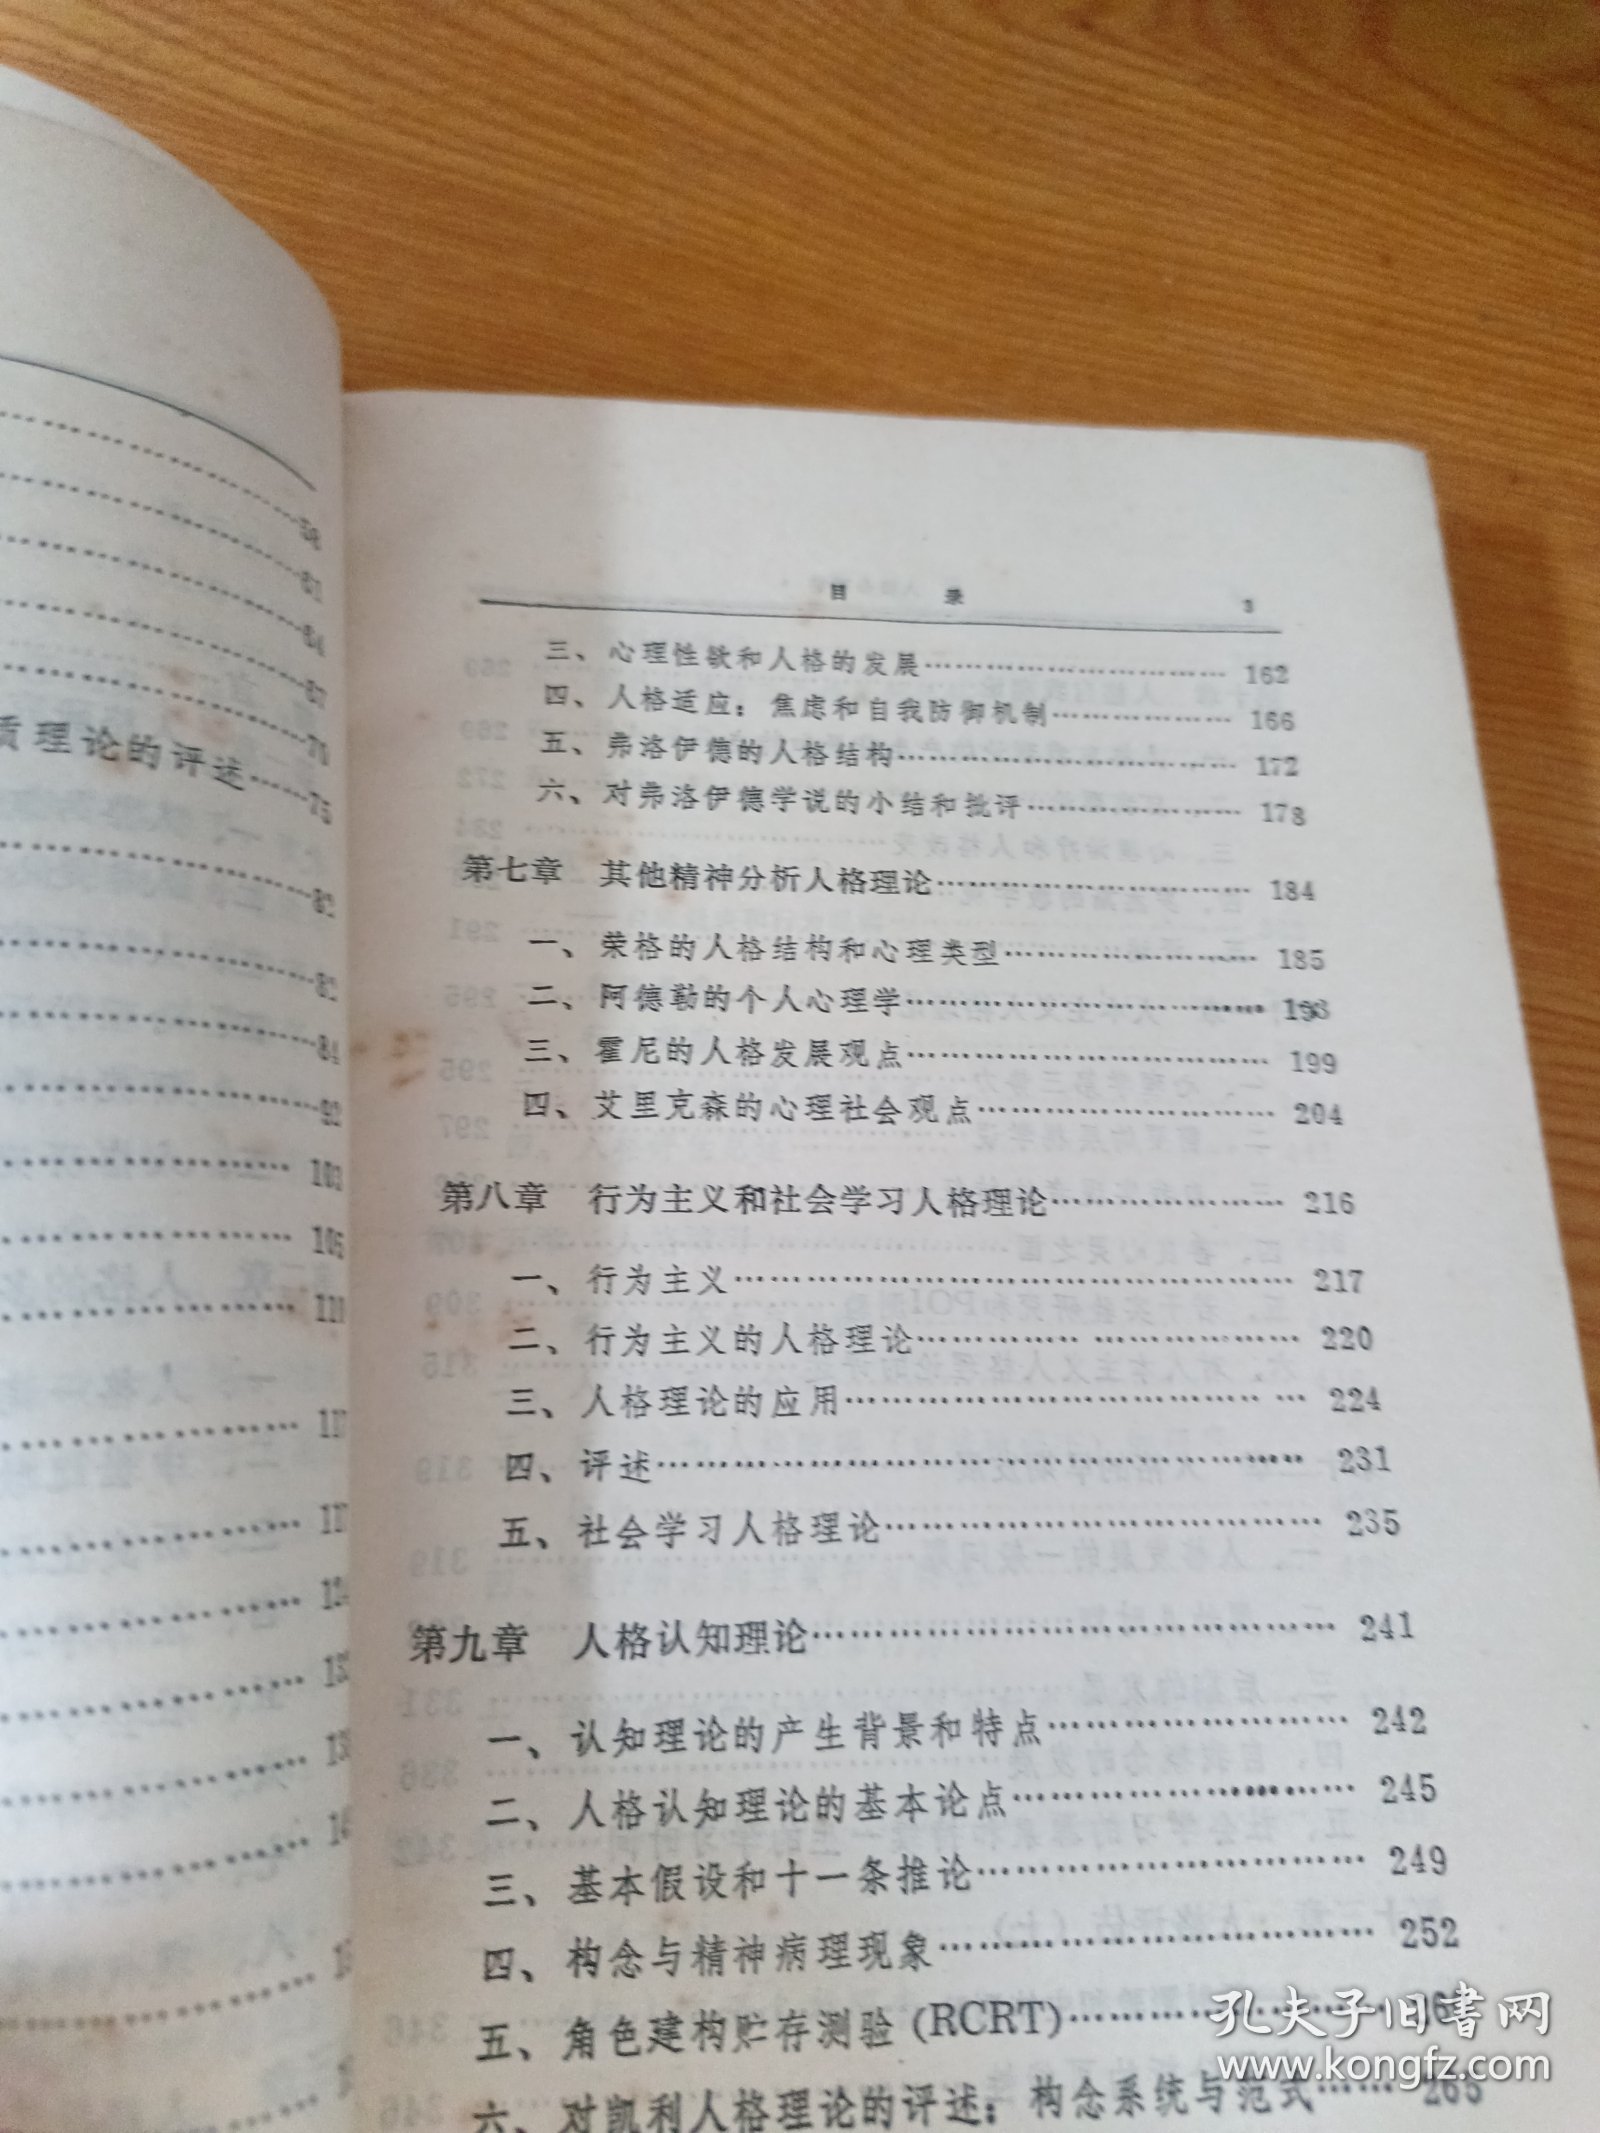 58
61
64
67
70
质理论的评述……75
82
82
84
92
103
105
目 录 3
三、心理性欲和人格的发展……162
四、人格适应：焦虑和自我防御机制……166
五、弗洛伊德的人格结构……172
六、对弗洛伊德学说的小结和批评……178
第七章 其他精神分析人格理论……184
一、荣格的人格结构和心理类型……185
二、阿德勒的个人心理学……193
三、霍尼的人格发展观点……199
四、艾里克森的心理社会观点……204
第八章 行为主义和社会学习人格理论……216
一、行为主义……217
二、行为主义的人格理论……220
三、人格理论的应用……224
四、评述……231
五、社会学习人格理论……235
第九章 人格认知理论……241
一、认知理论的产生背景和特点……242
二、人格认知理论的基本论点……245
三、基本假设和十一条推论……249
四、构念与精神病理现象……252
五、角色建构贮存测验(RCRT)……
六、对凯利人格理论的评述：构念系统与范式……265
孔夫子旧书网
www.kongfz.com